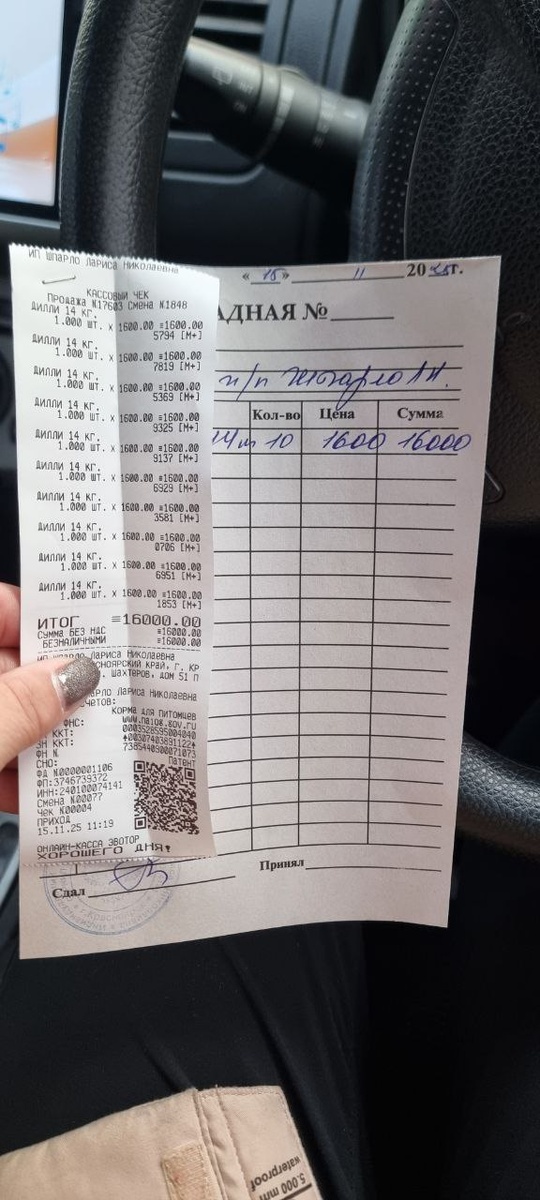 ИП ШПАРЛО ЛАРИСА НИКОЛАЕВНА
КАССОВЫЙ ЧЕК
Продажа N17603 Смена N1848
ДИЛЛИ 14 КГ.
1.000 ШТ. X 1600.00 =1600.00
5794 [M+]
ДИЛЛИ 14 КГ.
1.000 ШТ. X 1600.00 =1600.00
7819 [M+]
ДИЛЛИ 14 КГ.
1.000 ШТ. X 1600.00 =1600.00
5369 [M+]
ДИЛЛИ 14 КГ.
1.000 ШТ. X 1600.00 =1600.00
9325 [M+]
ДИЛЛИ 14 КГ.
1.000 ШТ. X 1600.00 =1600.00
9137 [M+]
ДИЛЛИ 14 КГ.
1.000 ШТ. X 1600.00 =1600.00
6929 [M+]
ДИЛЛИ 14 КГ.
1.000 ШТ. X 1600.00 =1600.00
3581 [M+]
ДИЛЛИ 14 КГ.
1.000 ШТ. X 1600.00 =1600.00
0706 [M+]
ДИЛЛИ 14 КГ.
1.000 ШТ. X 1600.00 =1600.00
6951 [M+]
ДИЛЛИ 14 КГ.
1.000 ШТ. X 1600.00 =1600.00
1853 [M+]
ИТОГ =16000.00
СУММА БЕЗ НДС =16000.00
БЕЗНАЛИЧНЫМИ =16000.00
ИП ШПАРЛО ЛАРИСА НИКОЛАЕВНА
СНОЯРСКИЙ КРАЙ, Г. КР
ШАХТЕРОВ, ДОМ 51 П
РЛО ЛАРИСА НИКОЛАЕВНА
СЧЕТОВ:
КОРМА ДЛЯ ПИТОМЦЕВ
ФНС: www.nalog.gov.ru
ККТ: 0003528595004040
ЗН ККТ: 00307403891122
ФН N 7385440900071073
СНО: Патент
ФД N0000001106
ФП:3746739372
ИНН:240100074141
Смена N00077
Чек N00004
ПРИХОД
15.11.25 11:19
ОНЛАЙН-КАССА ЭВОТОР
ХОРОШЕГО ДНЯ!
« 15 » 11 20 25 г.
АДНАЯ №
и/п Шпарло Л.Н.
Кол-во Цена Сумма
10 1600 16000
Сдал
Принял
5.000 mm
waterproof